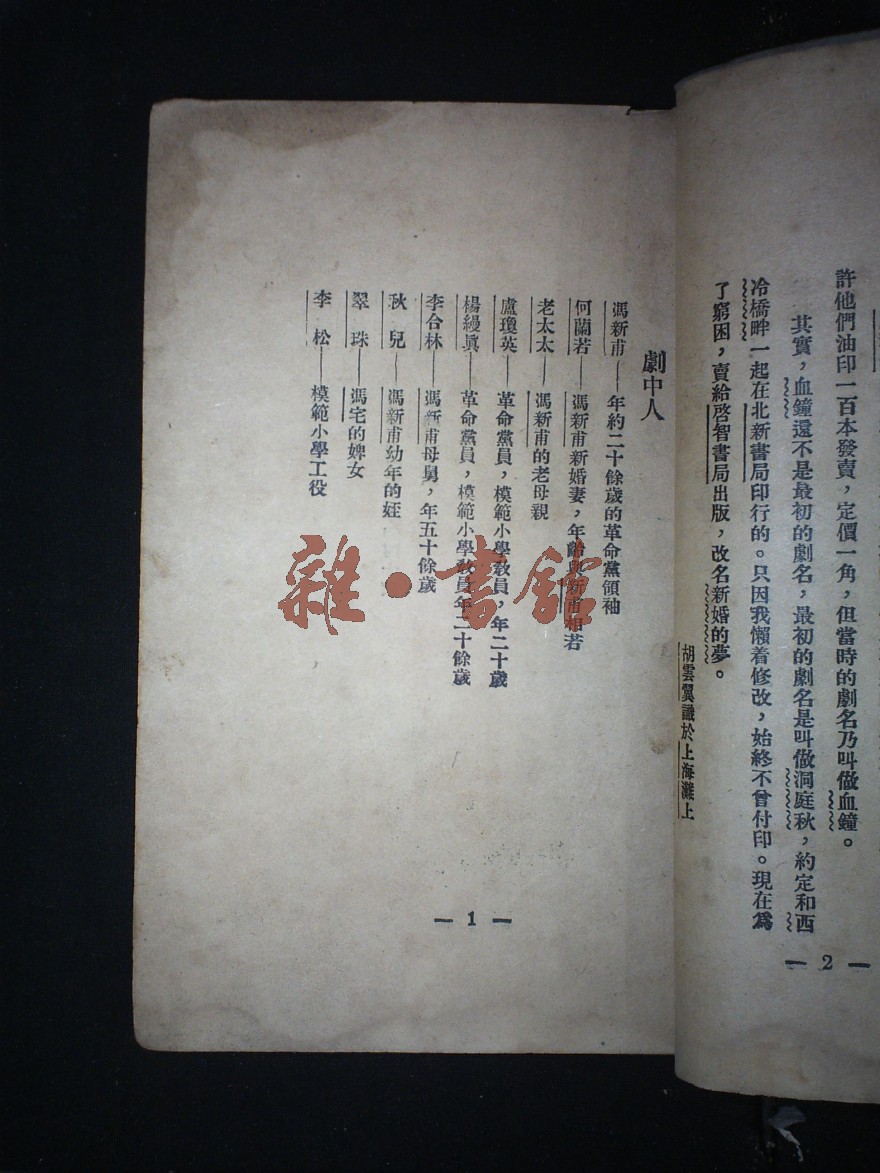 許他們油印一百本發賣，定價一角，但當時的劇名乃叫做血鐘。
其實，血鐘還不是最初的劇名，最初的劇名是叫做洞庭秋，約定和西
冷橋畔一起在北新書局印行的。只因我懶着修改，始終不曾付印。現在爲
了窮困，賣給啓智書局出版，改名新婚的夢。
胡雲翼識於上海灘上
— 2 —
劇中人
馮新甫——年約二十餘歲的革命黨領袖
何蘭若——馮新甫新婚妻，年齡與新甫相若
老太太——馮新甫的老母親
盧瓊英——革命黨員，模範小學敎員，年二十歲
楊縵眞——革命黨員，模範小學敎員年二十餘歲
李合林——馮新甫母舅，年五十餘歲
秋兒——馮新甫幼年的姪
翠珠——馮宅的婢女
李松——模範小學工役
— 1 —
雜·書館